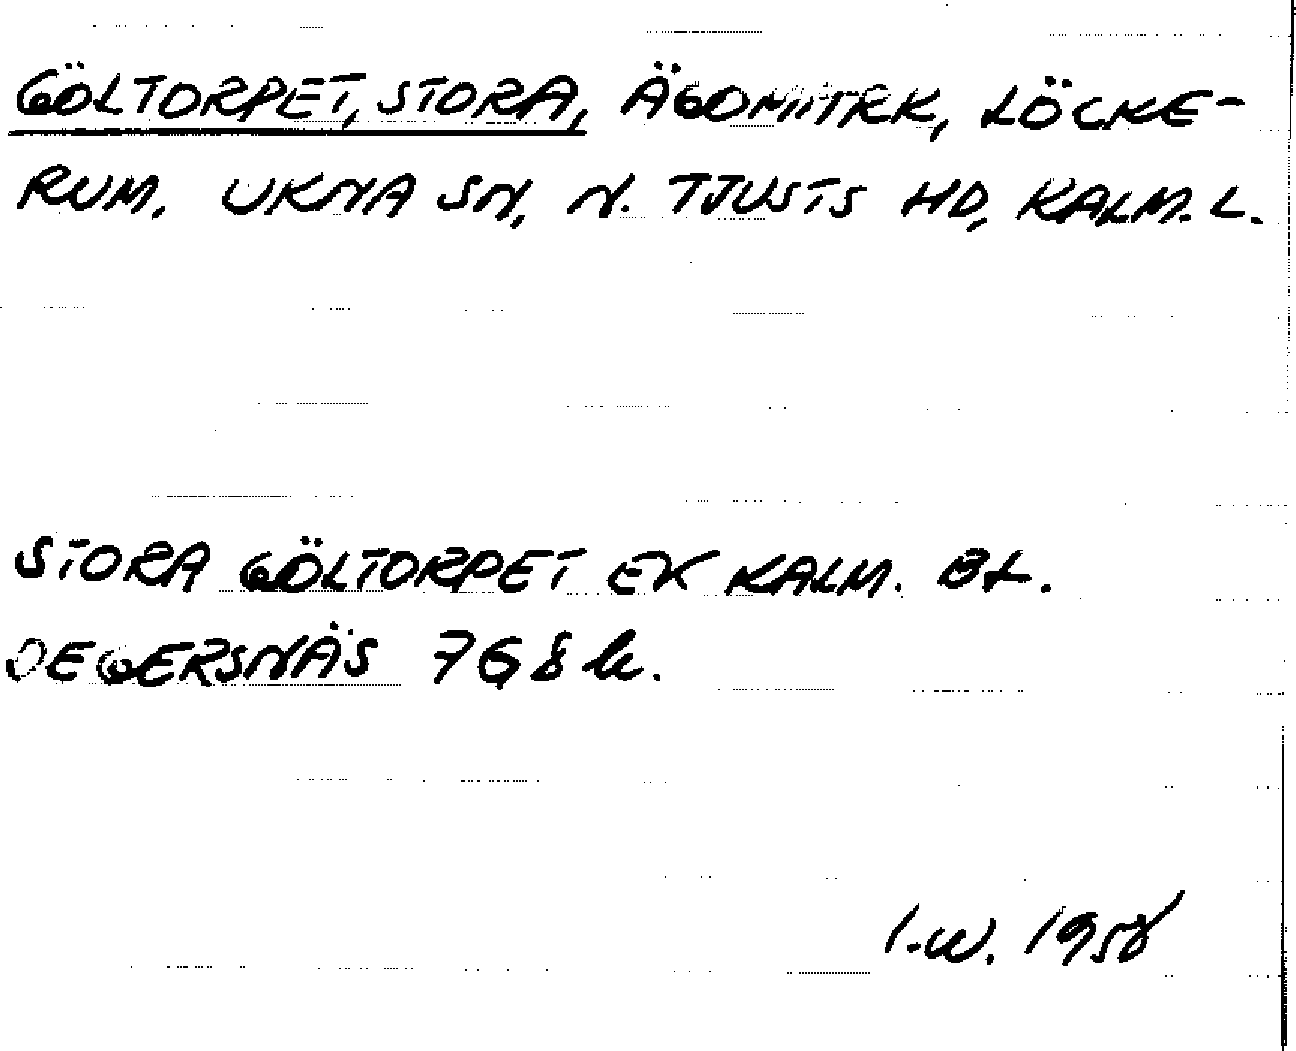 GÖLTORPET, STORA, ÄGOMÄRK, LÖCKE-
RUM. UKNA SN, N. TJUSTS HD, KALM. L.
STORA GÖLTORPET EK KALM. BL.
DEGERSNÄS 768 k.
I.W. 1958